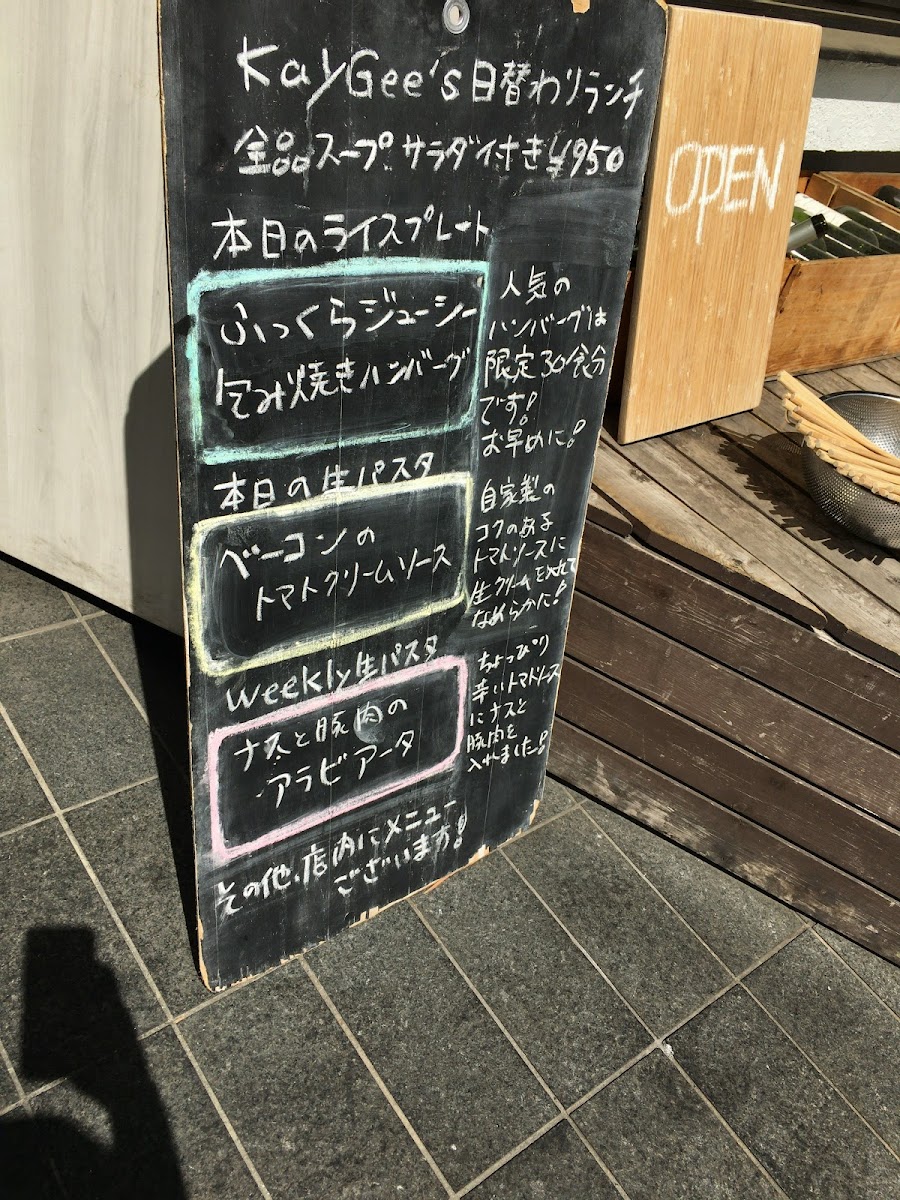 KayGee's 日替わりランチ
全品スープサラダ付き ¥950
本日のライスプレート
ふっくらジューシー
包み焼きハンバーグ
人気の
ハンバーグは
限定30食分
です!
お早めに!
本日の生パスタ
ベーコンの
トマトクリームソース
自家製の
コクのある
トマトソースに
生クリームを入れて
なめらかに!
weekly生パスタ
ナスと豚肉の
アラビアータ
ちょっぴり
辛いトマトソース
にナスと
豚肉を
入れました!
その他、店内にメニュー
ございます!
OPEN